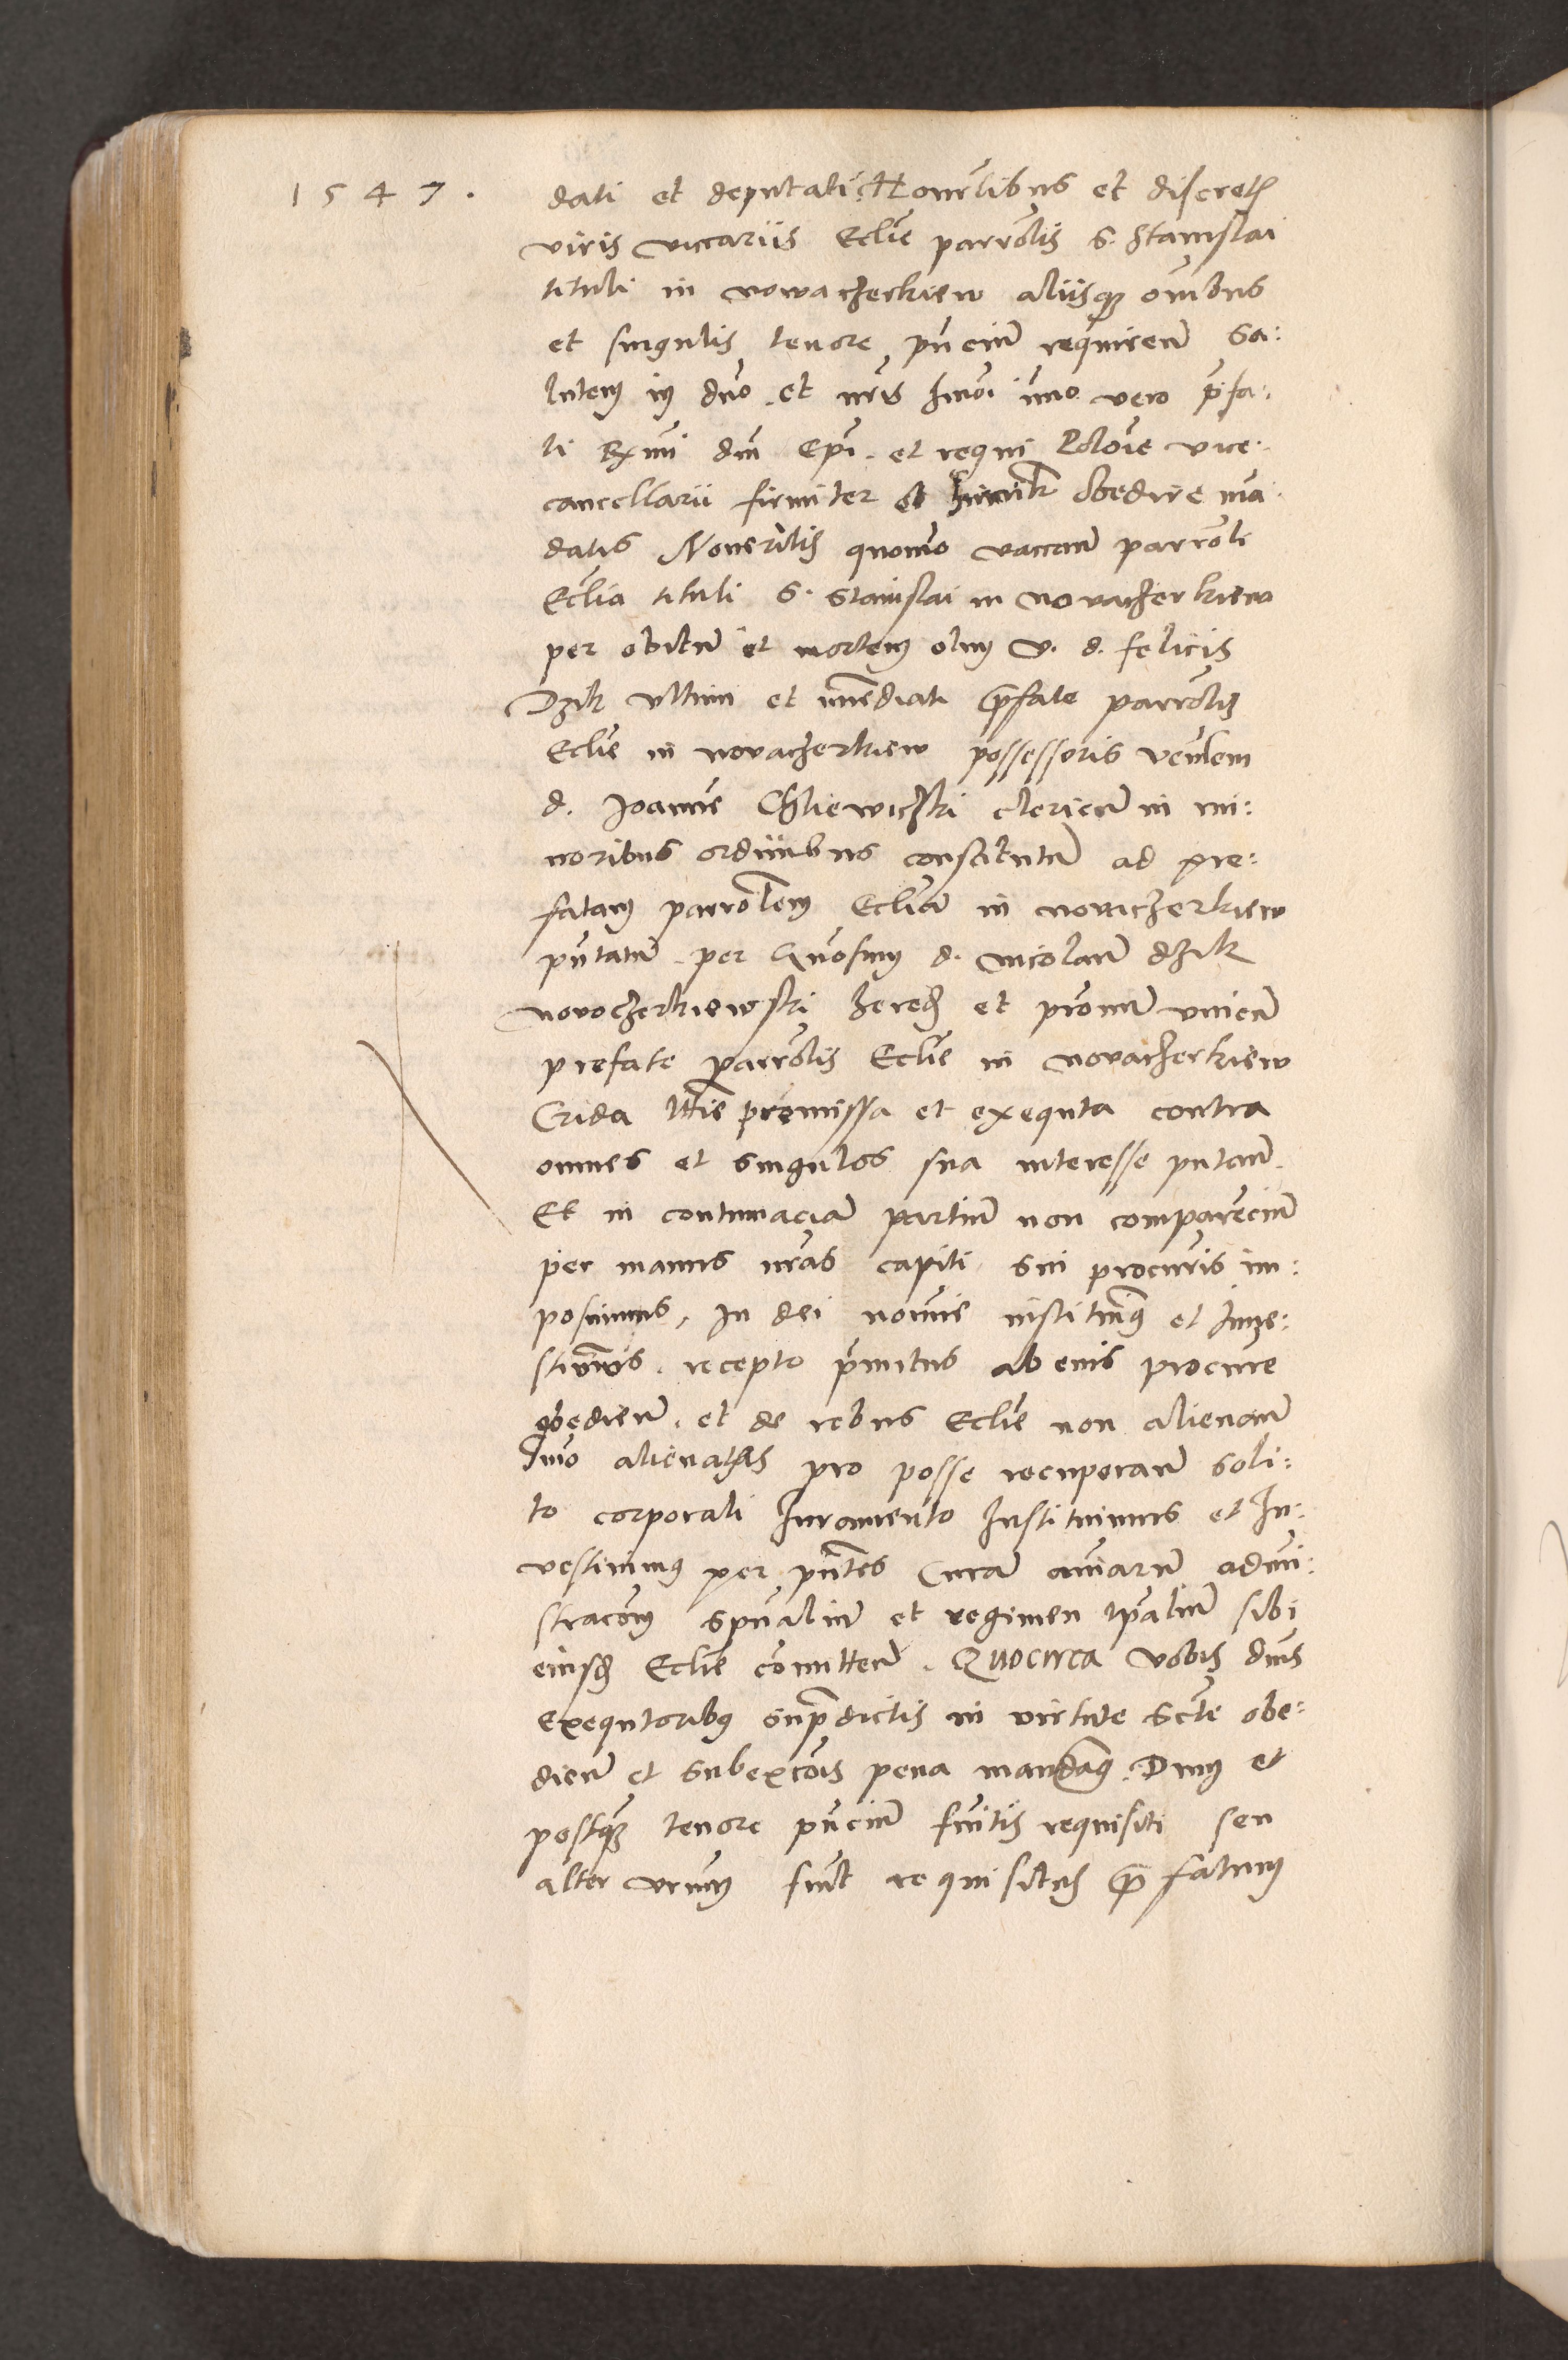 1547.
dati et deputati. Honrlibus et discretis
viris viccariis Eclie parrolis S. Stanislai
tituli in nowaczerkiew aliisque omibus
et singulis tenore pñcium requirend Sa:
lutem in dno et nris hmoi imo vero prefa:
ti Rxmi dni Epi et regni Polonie vice
cancellarii firmiter et obedire man
datis Noveritis quomo vaccan parroli
Eclia tituli S. Stanislai in novaczerkiew
per obitum et mortem olim V. d. felicis
Dzik ultimi et imediati prefate parrolis
Eclie in novaczerkiew possessoris venlem
d. Joannem Chliewiczski clericum in mi:
noribus ordinibus constitutum ad pre:
fatam parrolem Ecliam in novaczerkiew
pñtatum per Gnosum d. nicolaum dzik
novoczerkiewski hered et pronum unicum
prefate parrolis Eclie in novaczerkiew
Crida lttime premissa et exequta contra
omnes et singulos sua interesse putan.
Et in contumaciam partium non comparecium
per manus nras capiti sui procuris im:
posuimus, in dei nomie instituimus et inve:
stivimus recepto primitus ab eius procure
obedien. et de rebus Eclie non alienan
imo alienatis pro posse recuperan soli:
to corporali Iuramento Instituimus et In:
vestimus per pñtes Curam animarum admi:
stracom spualium et regimen tpalium sibi
eiusdem Eclie comitten. Quocirca vobis dnis
exequtoribus onpredictis in virtute Scte obe:
dien et sub excois pena mandamus. Dum et
postquam tenore pñcium fueritis requisiti seu
alter vrum fuit requisitus prefatum